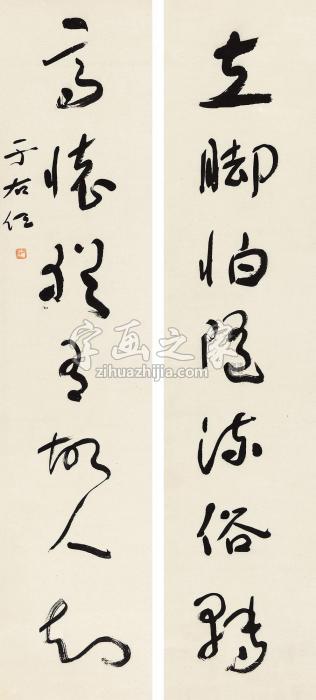 立脚怕随流俗转
高怀犹有故人知
于右任
字画之家
zihuazhijia.com